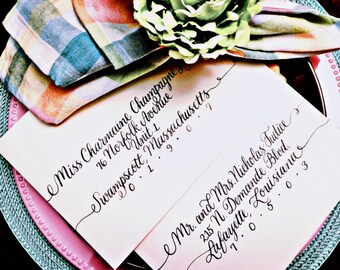 Miss Charmaine Champagne
76 New York Avenue
Unit 1
Swampscott Massachusetts
0 . 1 . 9 . 0 . 7
Mr. and Mrs. Nicholas
235 N. Domande Blvd.
Lafayette, Louisiana
7 . 0 . 5 . 0 . 3